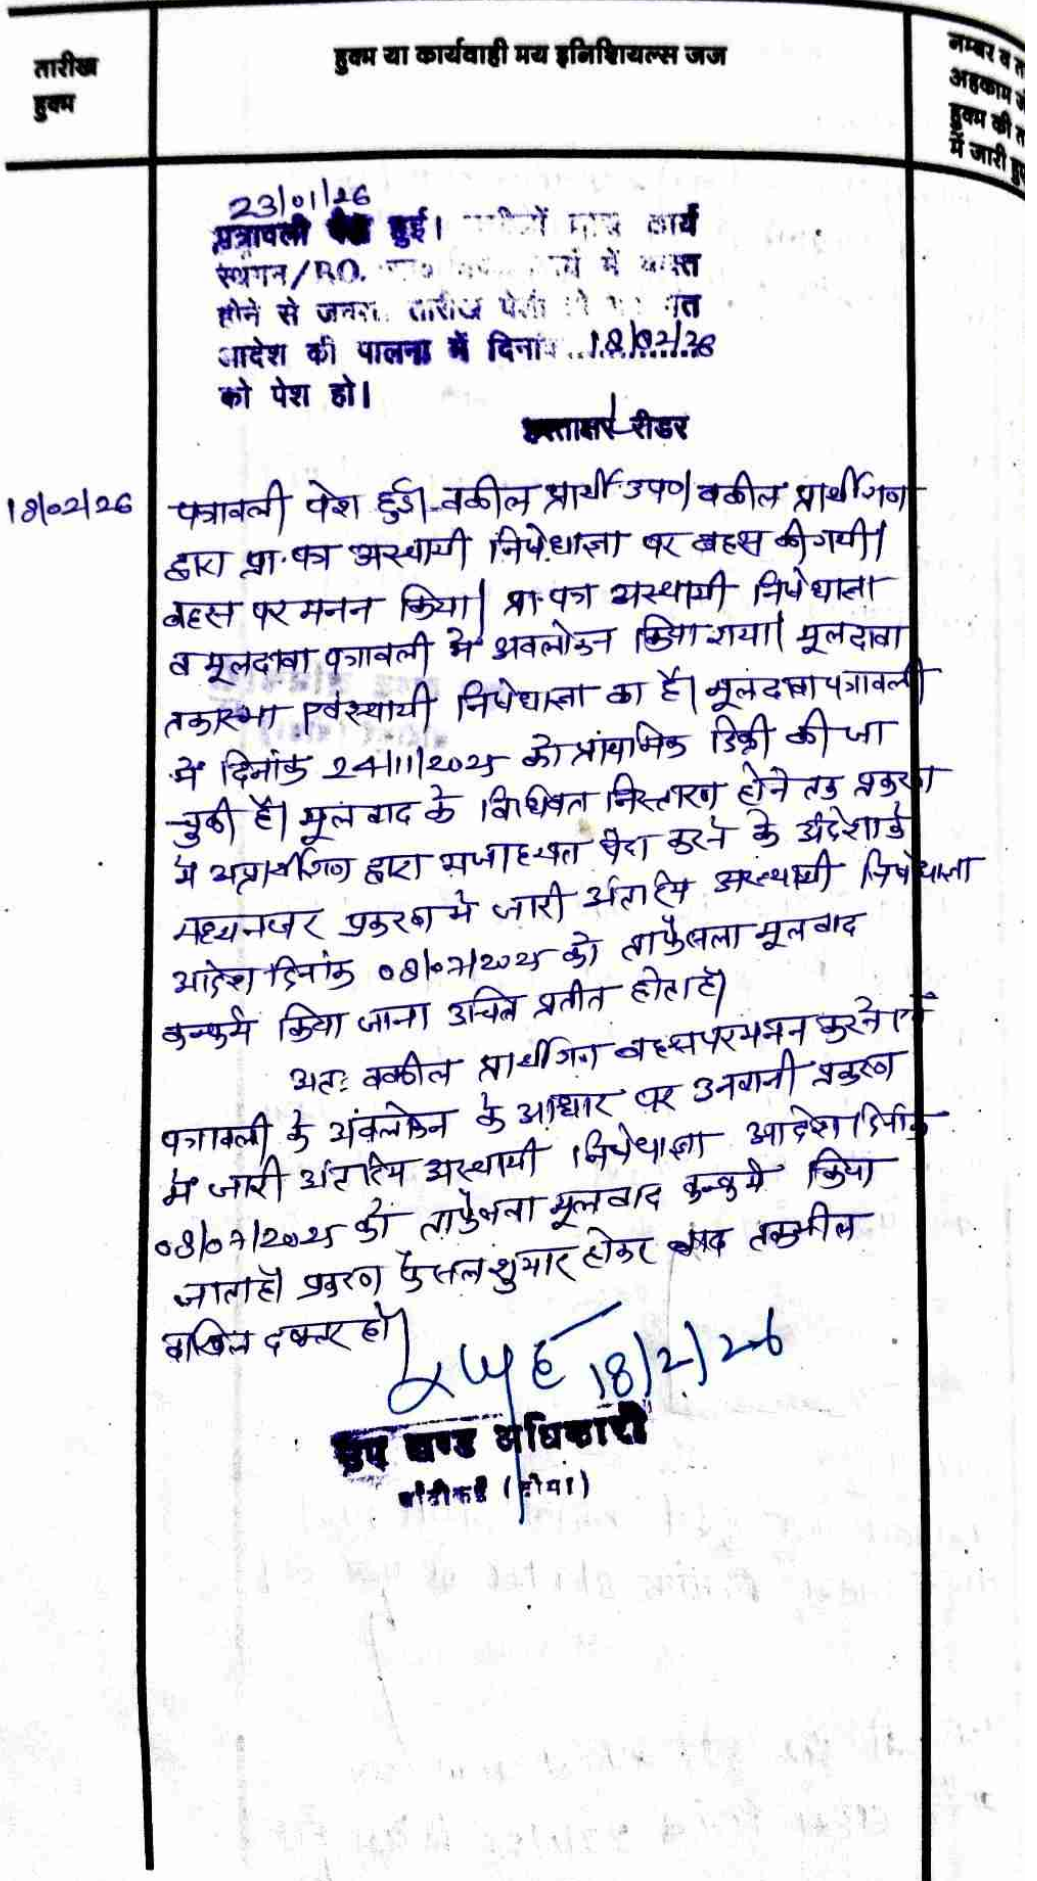 तारीख
हुक्म
हुक्म या कार्यवाही मय इनिशियल्स जज
नम्बर व
अहकाम
हुक्म की
में जारी
23/01/26
पत्रावली पेश हुई। कार्य
स्थगन/P.O. में व्यस्त
होने से तारीख पेशी गत
आदेश की पालना में दिनांक 18/02/26
को पेश हो।
हस्ताक्षर रीडर
18/02/26
पत्रावली पेश हुई। वकील प्रार्थी उप०। वकील प्रार्थीगण
द्वारा प्रा.पत्र अस्थायी निषेधाज्ञा पर बहस की गयी।
बहस पर मनन किया। प्रा.पत्र अस्थायी निषेधाज्ञा
व मूलदावा पत्रावली में अवलोकन किया गया। मूलदावा
तकास्मा एवं स्थायी निषेधाज्ञा का है। मूलदावा पत्रावली
में दिनांक 24/11/2025 को प्राथमिक डिक्री की जा
चुकी है। मूलवाद के विधिवत निस्तारण होने तक प्रकरण
में अप्रार्थीगण द्वारा मजाहमत पैदा करने के अंदेशा के
मध्यनजर प्रकरण में जारी अंतरिम अस्थायी निषेधाज्ञा
आदेश दिनांक 08/07/2025 को ताफैसला मूलवाद
कन्फर्म किया जाना उचित प्रतीत होता है।
अतः वकील प्रार्थीगण बहस पर मनन करने एवं
पत्रावली के अवलोकन के आधार पर उनवानी प्रकरण
में जारी अंतरिम अस्थायी निषेधाज्ञा आदेश दिनांक
08/07/2025 को ताफैसला मूलवाद कन्फर्म किया
जाता है। प्रकरण फैसल शुमार होकर बाद तकमील
दाखिल दफ्तर हो।
18/2/26
उप खण्ड अधिकारी